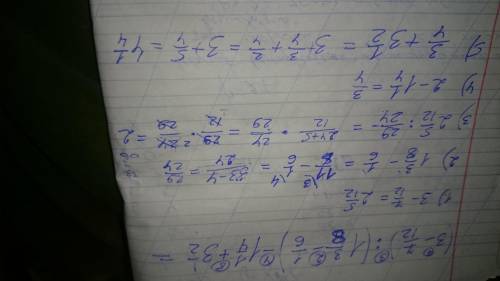 (3 - 7/12) : (1 3/8 - 1/6) - 1 1/4 + 3 1/2 =
1) 3 - 7/12 = 2 5/12
2) 1 3/8 - 1/6 = 11/8 - 1/6 = 33-4/24 = 29/24
3) 2 5/12 : 29/24 = 24+5/12 · 24/29 = 29/12 · 24/29 = 2
4) 2 - 1 1/4 = 3/4
5) 3/4 + 3 1/2 = 3 3/4 + 2/4 = 3 + 5/4 = 4 1/4